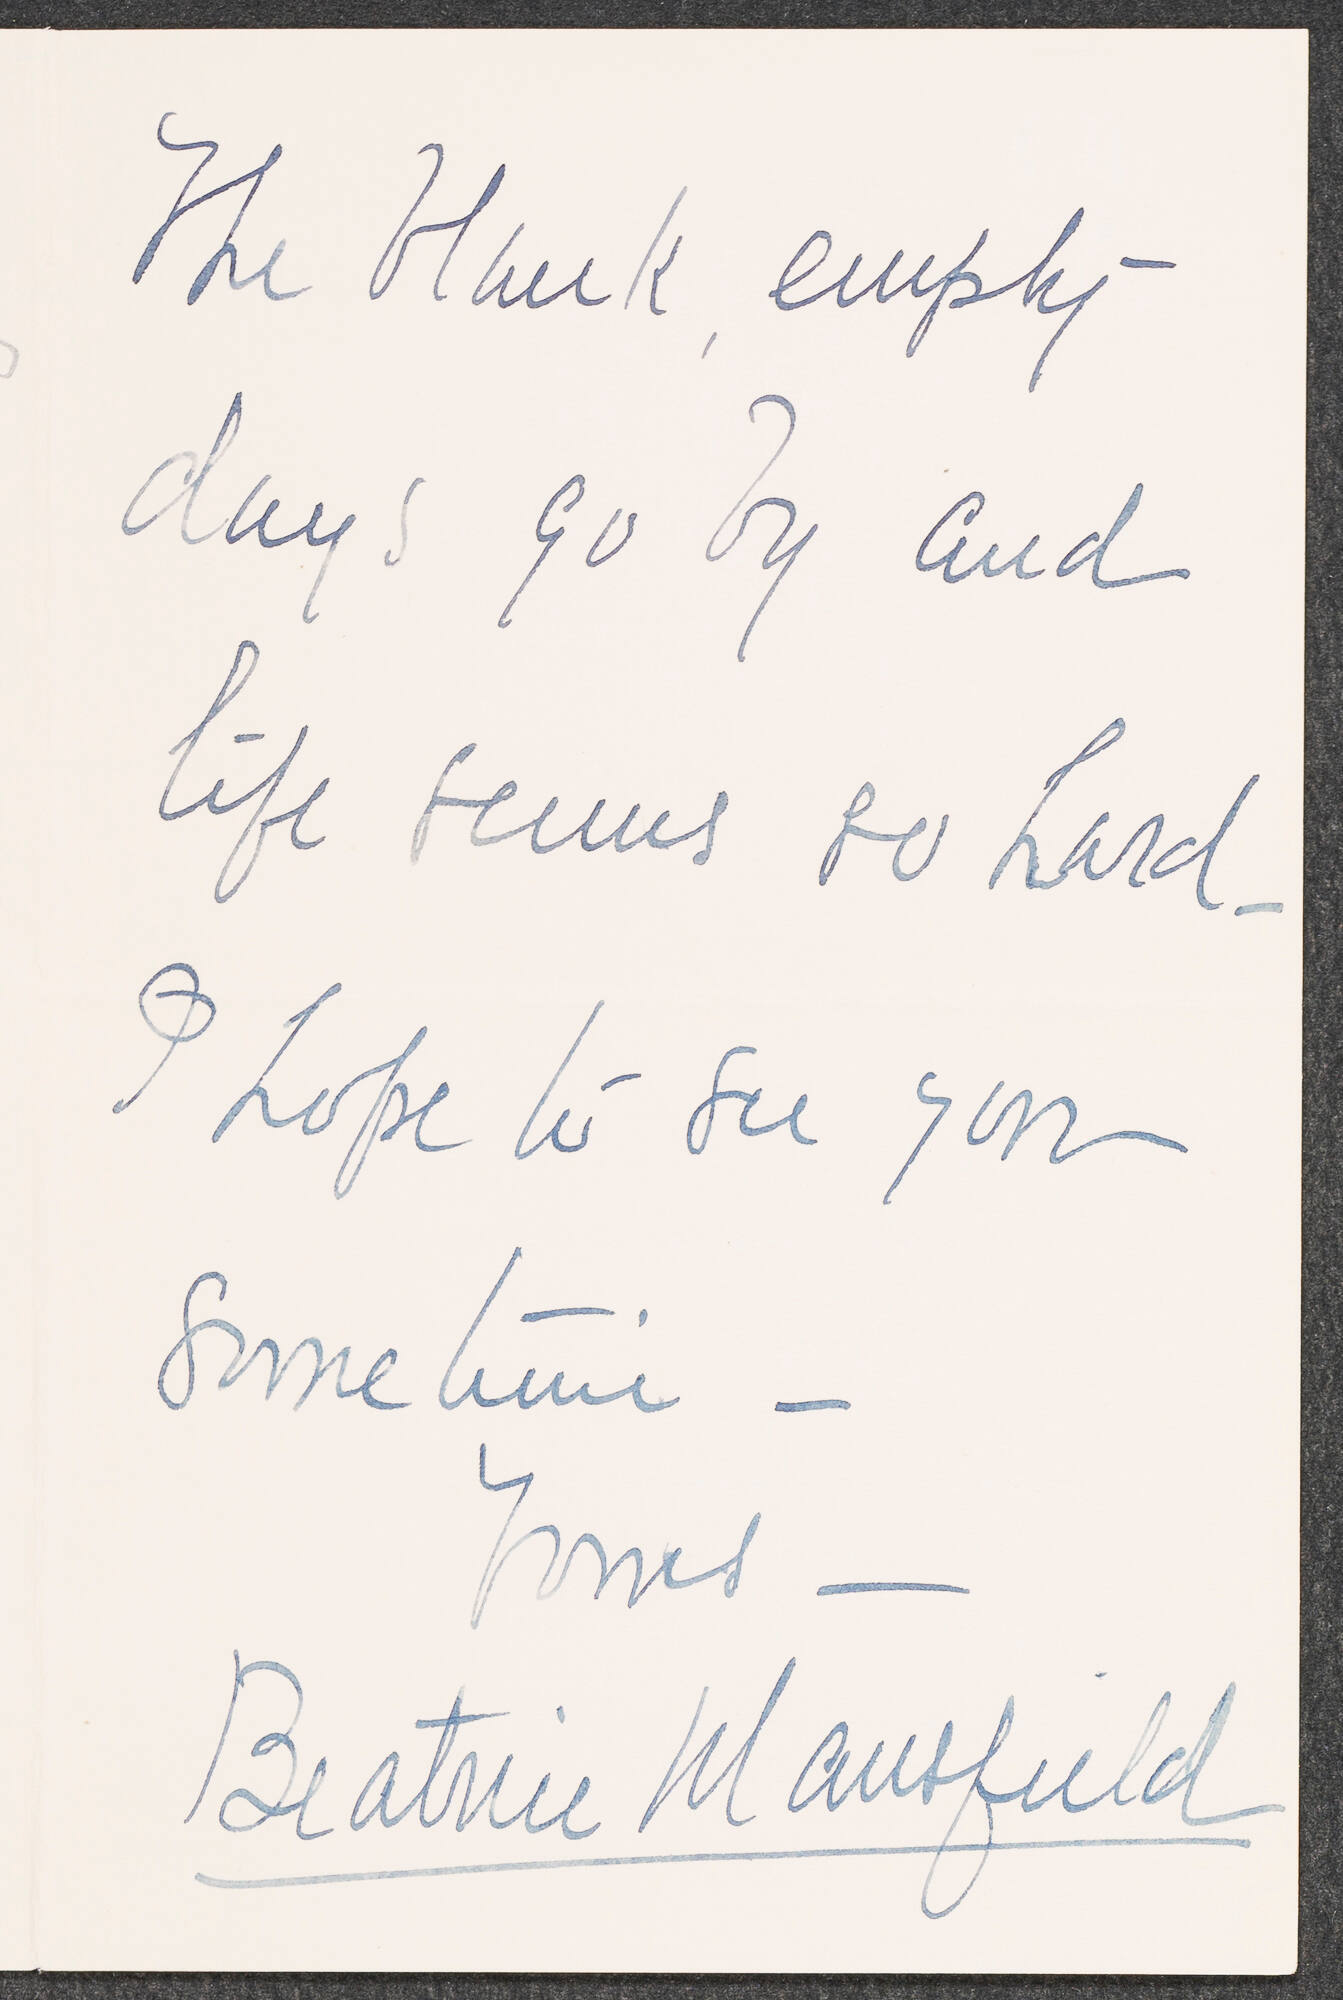 The blank, empty
days go by and
life seems so hard -
I hope to see you
sometime -
Yours -
Beatrice Mansfield